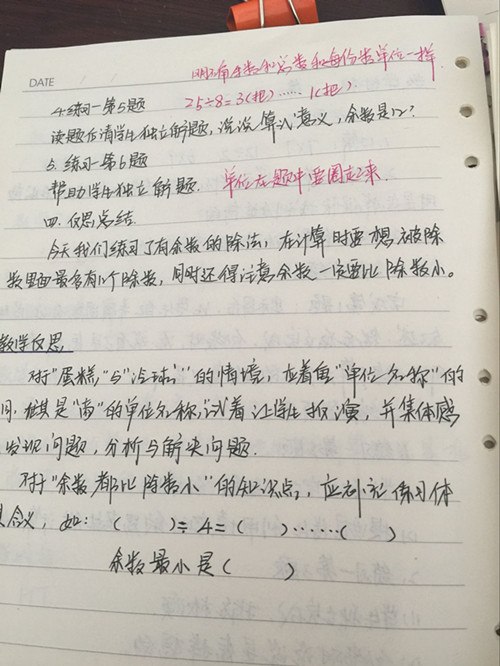 DATE
明确余数和总数和每份数单位一样
4.练习一第5题
25÷8=3(把)……1(把)
读题后请学生独立解题,说说算式意义,余数是几?
5.练习一第6题
帮助学生独立解题.
单位在题中要圈起来.
四.反思总结
今天我们练习了有余数的除法,在计算时要想被除
数里面最多有几个除数,同时还得注意余数一定要比除数小。
教学反思
对于"蛋糕"与"冷球"的情境,应着重"单位名称"的
用.尤其是"商"的单位名称,试着让学生扮演,并集体感
发现问题,分析与解决问题.
对于"余数都比除数小"的知识点,应补充练习体
含义,如:( )÷4=( )……( )
余数最小是( )